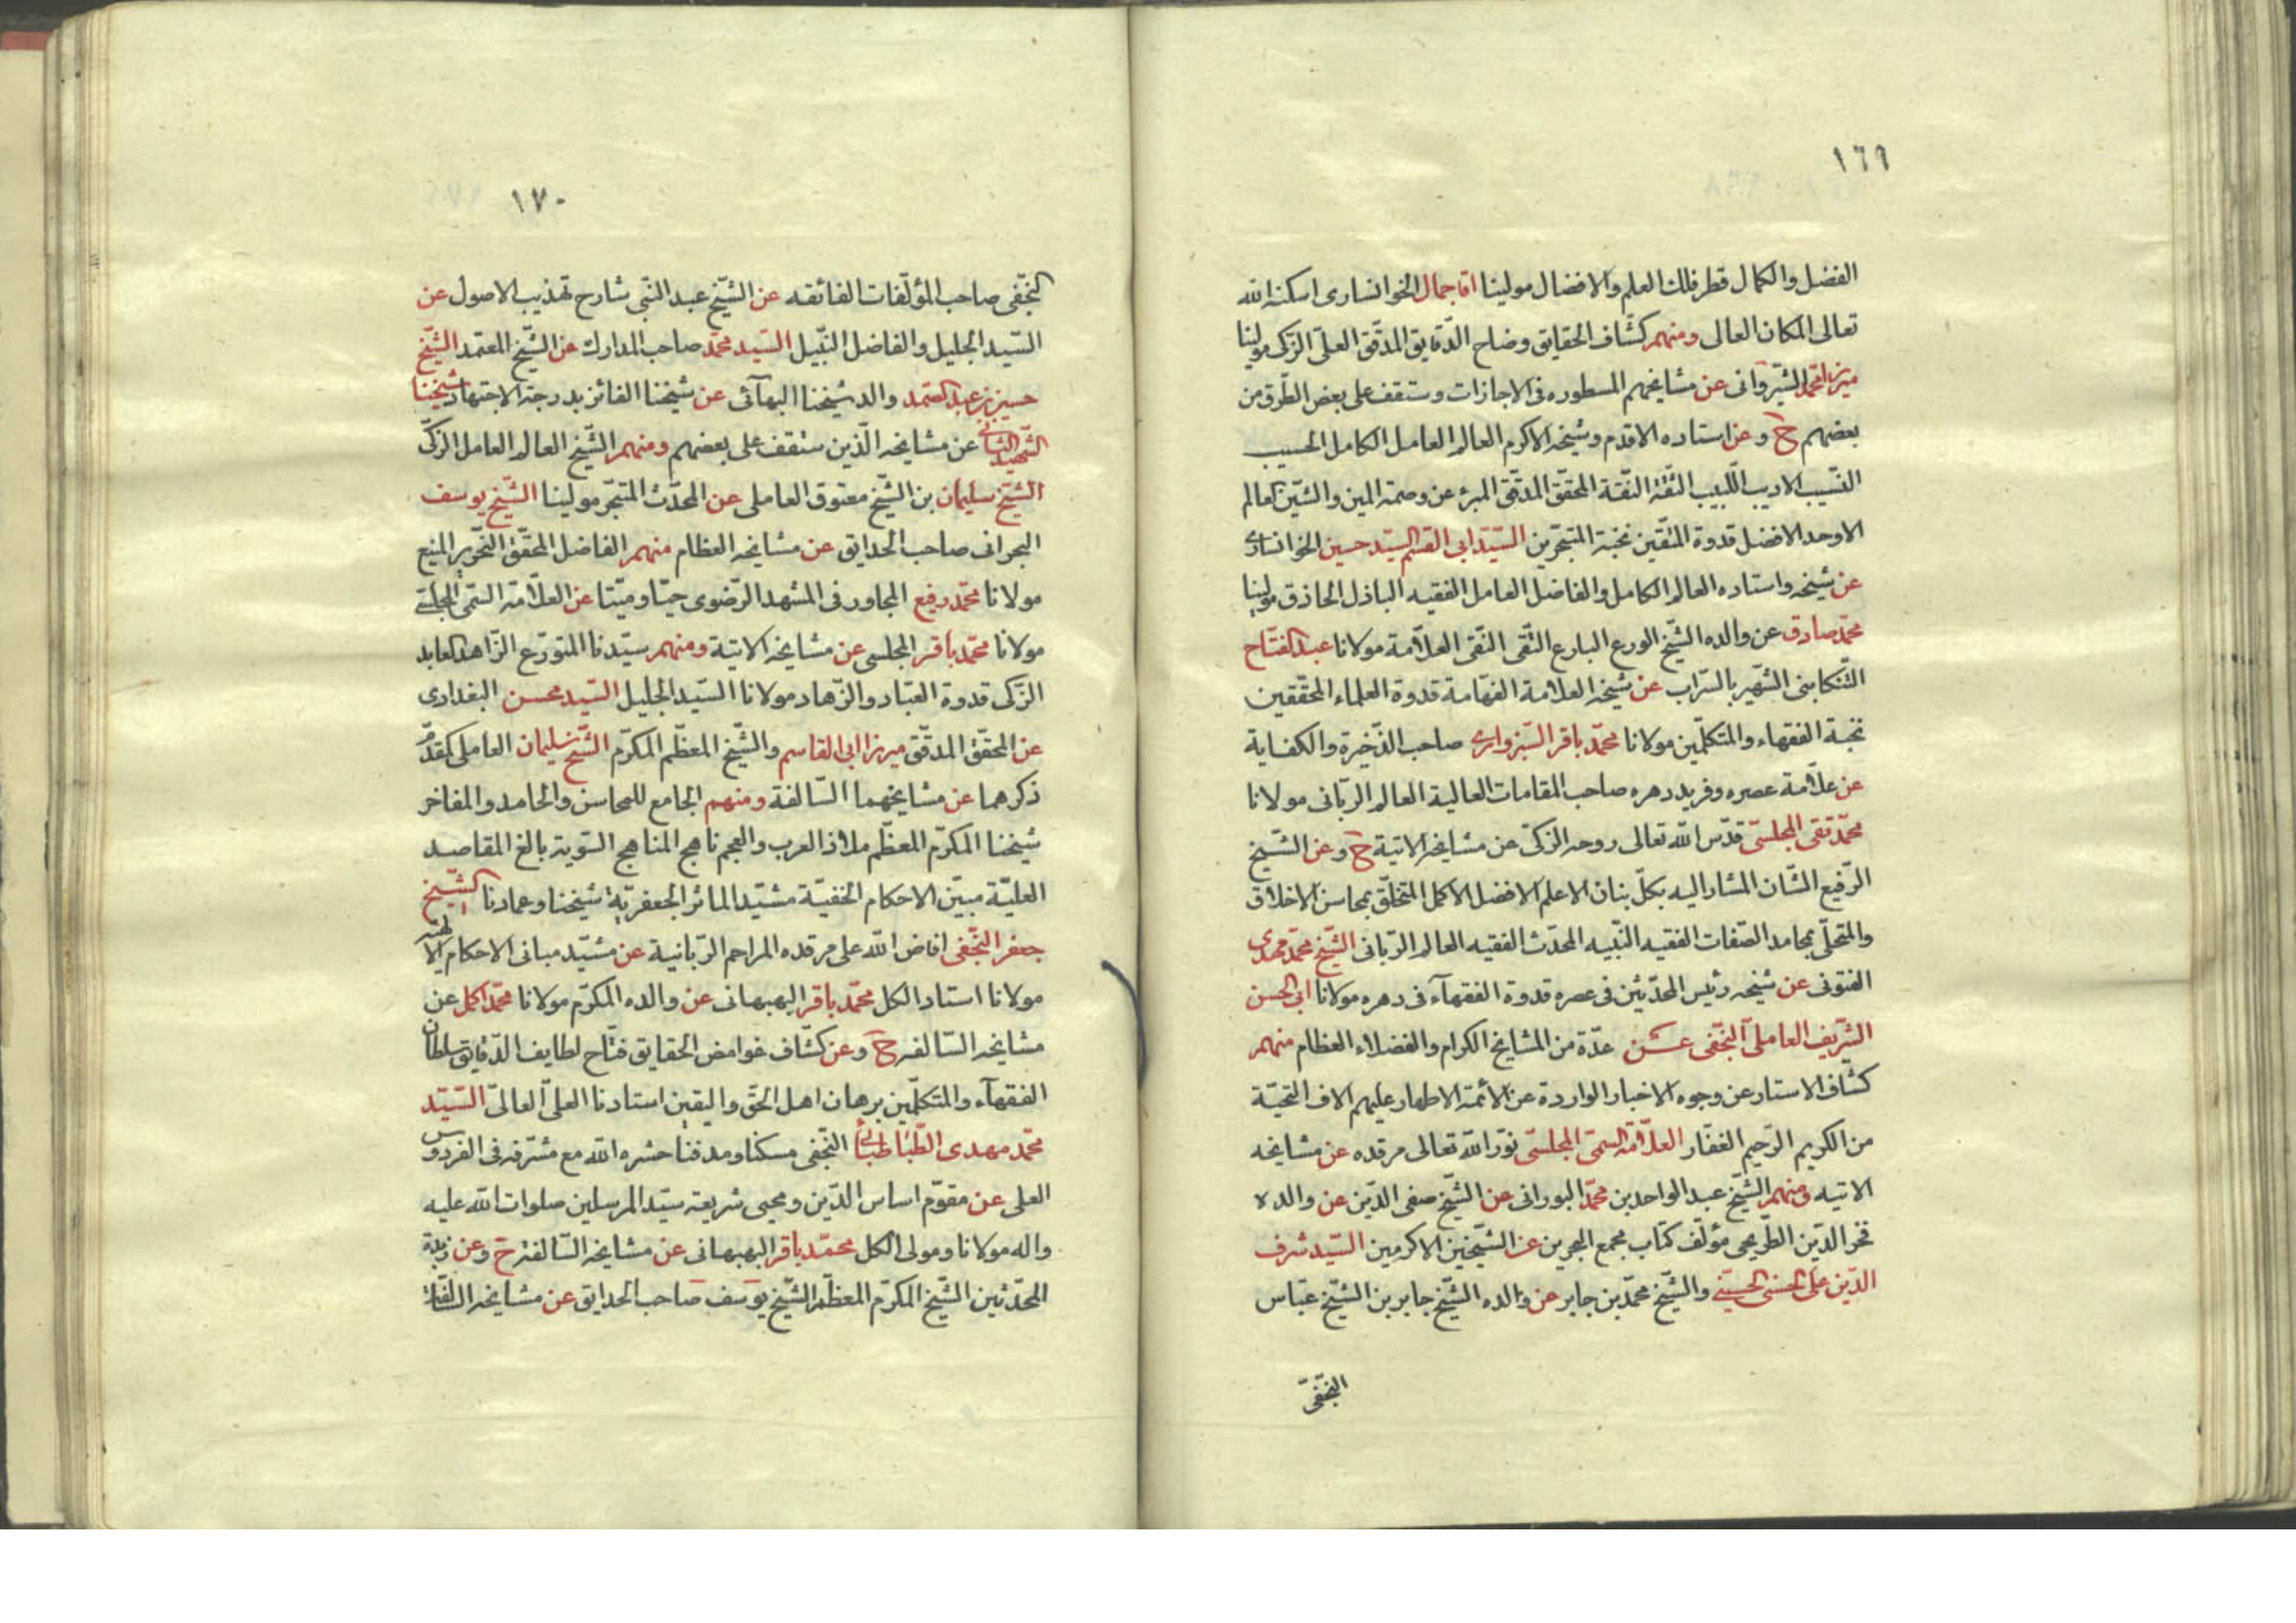 ١٦٩
الفضل والكمال قطر فلك العلم والافضال مولينا اقا جمال الخوانسارى اسكنه الله
تعالى المكان العالى ومنهم كشّاف الحقايق وضاح الدّقايق المدقّق العلىّ الزكى مولينا
ميرزا محمد الشيروانى عن مشايخهم المسطوره فى الاجازات وستقف على بعض الطّرق من
بعضهم ح وعن استاده الاقدم وشيخه الاكرم العالم العامل الكامل الحسيب
النسيب الاديب اللّبيب الثقة النقة المحقق المدقق المبرئ عن وصمة المين والشّين العالم
الاوحد الافضل قدوة المتّقين نخبة المتبحرين السيّد ابى القسم السيّد حسين الخوانسارى
عن شيخه واستاده العالم الكامل والفاضل العامل الفقيه الباذل الحاذق مولينا
محمّد صادق عن والده الشيخ الورع البارع التّقى النّقى العلاّمة مولانا عبد الفتّاح
التّنكابنى الشهير بالسّراب عن شيخه العلامة الفهّامة قدوة العلماء المحقّقين
نخبة الفقهاء والمتكلّمين مولانا محمّد باقر السّبزوارى صاحب الذّخيرة والكفاية
عن علاّمة عصره وفريد دهره صاحب المقامات العالية العالم الربّانى مولانا
محمّد تقى المجلسىّ قدّس الله تعالى روحه الزكىّ عن مشايخه الاتية ح وعن الشّيخ
الرّفيع الشّان المشار اليه بكلّ بنان الاعلم الافضل الاكمل المتخلّق بمحاسن الاخلاق
والمتحلّى بمحامد الصّفات الفقيه النّبيه المحدّث الفقيه العالم الربّانى الشّيخ محمّد مهدى
الفتونى عن شيخه رئيس المحدّثين فى عصره قدوة الفقهآء فى دهره مولانا ابى الحسن
الشّريف العاملى النّجفى عن عدّة من المشايخ الكرام والفضلاء العظام منهم
كشّاف الاستار عن وجوه الاخبار الواردة عن الأئمّة الاطهار عليهم الاف التحيّة
من الكريم الرّحيم الغفّار العلاّمة السمىّ المجلسىّ نوّر الله تعالى مرقده عن مشايخه
الاتيه ومنهم الشّيخ عبد الواحد بن محمّد البورانى عن الشّيخ صفى الدّين عن والده
فخر الدّين الطّريحى مؤلّف كتاب مجمع البحرين عن الشّيخين الاكرمين السيّد شرف
الدّين على الحسنى الحسينى والشّيخ محمّد بن جابر عن والده الشّيخ جابر بن الشّيخ عبّاس
النّجفىّ
١٧٠
النّجفى صاحب المؤلّفات الفائقه عن الشّيخ عبد النّبى شارح تهذيب الاصول عن
السّيد الجليل والفاضل النّبيل السّيد محمّد صاحب المدارك عن الشّيخ المعتمد الشّيخ
حسين بن عبد الصّمد والد شيخنا البهآئى عن شيخنا الفائز بدرجة الاجتهاد شيخنا
الشّهيد الثّانى عن مشايخه الّذين ستقف على بعضهم ومنهم الشّيخ العالم العامل الزكىّ
الشّيخ سليمان بن الشّيخ معتوق العاملى عن المحدّث المتبحّر مولينا الشّيخ يوسف
البحرانى صاحب الحدايق عن مشايخه العظام منهم الفاضل المحقّق النّحرير المنيع
مولانا محمّد رفيع المجاور فى المشهد الرّضوى حيّا وميّتا عن العلاّمة السّمى المجلسى
مولانا محمّد باقر المجلسى عن مشايخه الاتية ومنهم سيّدنا المتورّع الزّاهد العابد
الزّكى قدوة العبّاد والزّهاد مولانا السّيد الجليل السّيد محسن البغدادى
عن المحقّق المدقّق ميرزا ابى القاسم والشّيخ المعظّم المكرّم الشّيخ سليمان العاملى المقدّم
ذكرهما عن مشايخهما السّالفة ومنهم الجامع للمحاسن والمحامد والمفاخر
شيخنا المكرّم المعظّم ملاذ العرب والعجم ناهج المناهج السّوية بالغ المقاصد
العليّة مبيّن الاحكام الخفيّة مشيّد الماثر الجعفريّة شيخنا وعمادنا الشّيخ
جعفر النّجفى افاض الله على مرقده المراحم الرّبانية عن مشيّد مبانى الاحكام الالهيّة
مولانا استاد الكل محمّد باقر البهبهانى عن والده المكرّم مولانا محمّد اكمل عن
مشايخه السّالفه ح وعن كشّاف غوامض الحقايق فتّاح لطايف الدّقايق سلطان
الفقهآء والمتكلّمين برهان اهل الحقّ واليقين استادنا العلىّ العالىّ السّيّد
محمّد مهدى الطّباطبائى النّجفى مسكنا ومدفنا حشره الله مع مشرّفه فى الفردوس
العلى عن مقوّم اساس الدّين ومحيى شريعة سيّد المرسلين صلوات الله عليه
واله مولانا ومولى الكل محمّد باقر البهبهانى عن مشايخه السّالفة ح وعن زبدة
المحدّثين الشّيخ المكرّم المعظّم الشّيخ يوسف صاحب الحدايق عن مشايخه السّالفة